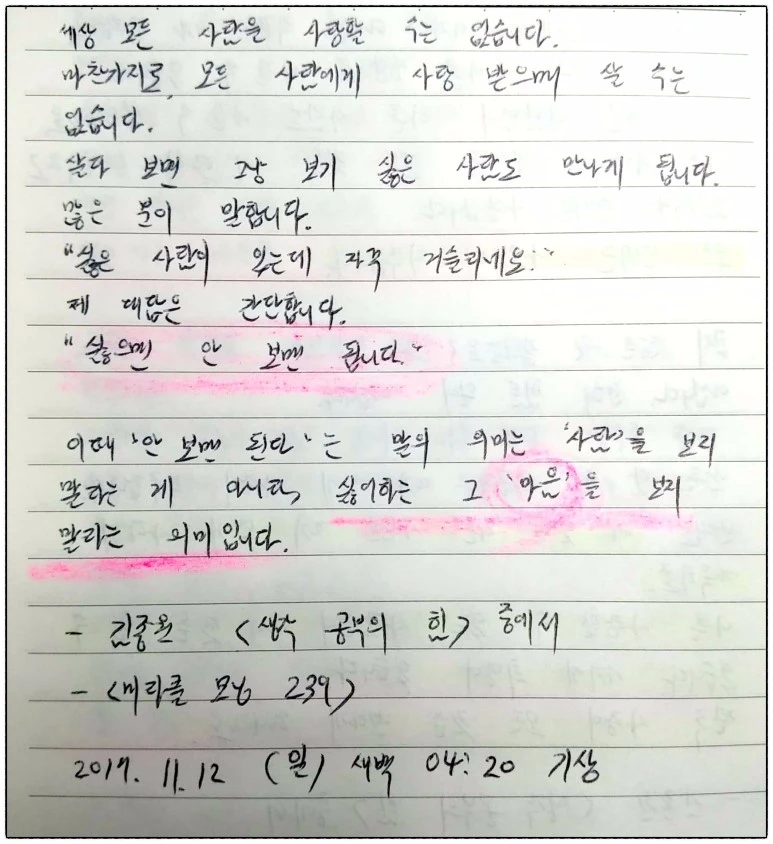 세상 모든 사람을 사랑할 수는 없습니다.
마찬가지로, 모든 사람에게 사랑 받으며 살 수는
없습니다.
살다 보면 그냥 보기 싫은 사람도 만나게 됩니다.
많은 분이 말합니다.
"싫은 사람이 있는데 자꾸 거슬리네요!"
제 대답은 간단합니다.
"싫으면 안 보면 됩니다."
이때 '안 보면 된다'는 말의 의미는 '사람'을 보지
말라는 게 아니다, 싫어하는 그 '마음'을 보지
말라는 의미입니다.
- 김종원 <생각 공부의 힘> 중에서
- <미라클 모닝 239>
2017. 11. 12 (일) 새벽 04:20 기상